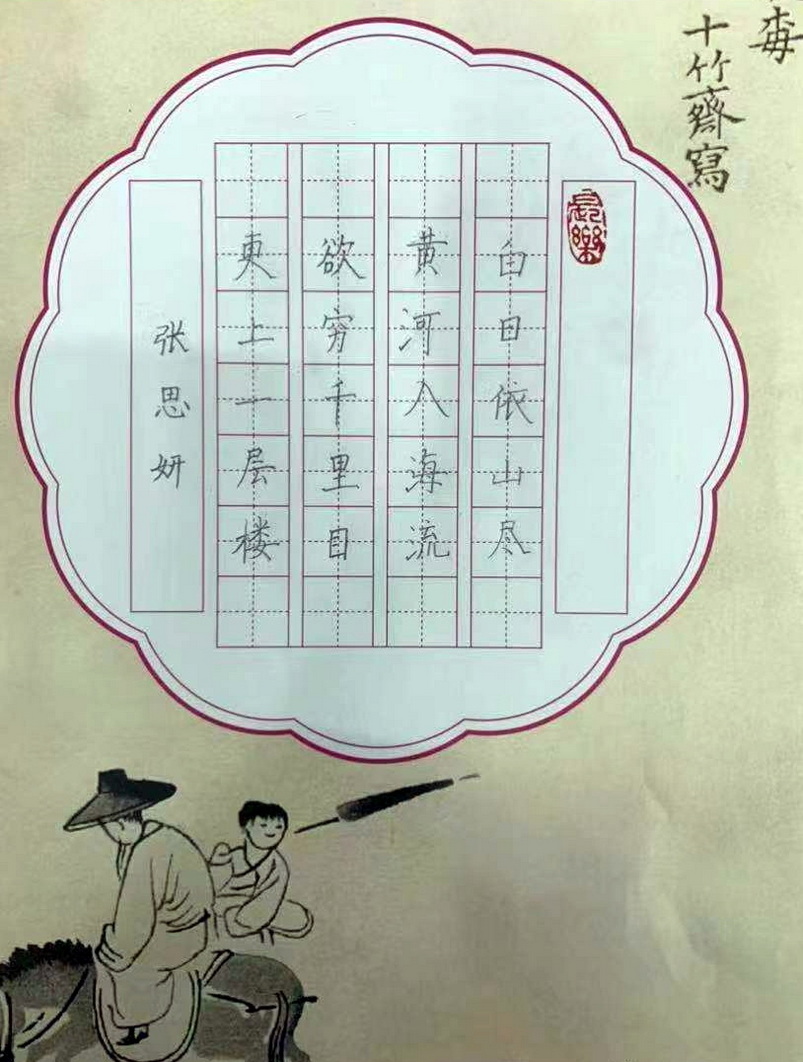 十竹齋寫
白日依山尽
黄河入海流
欲穷千里目
更上一层楼
张思妍